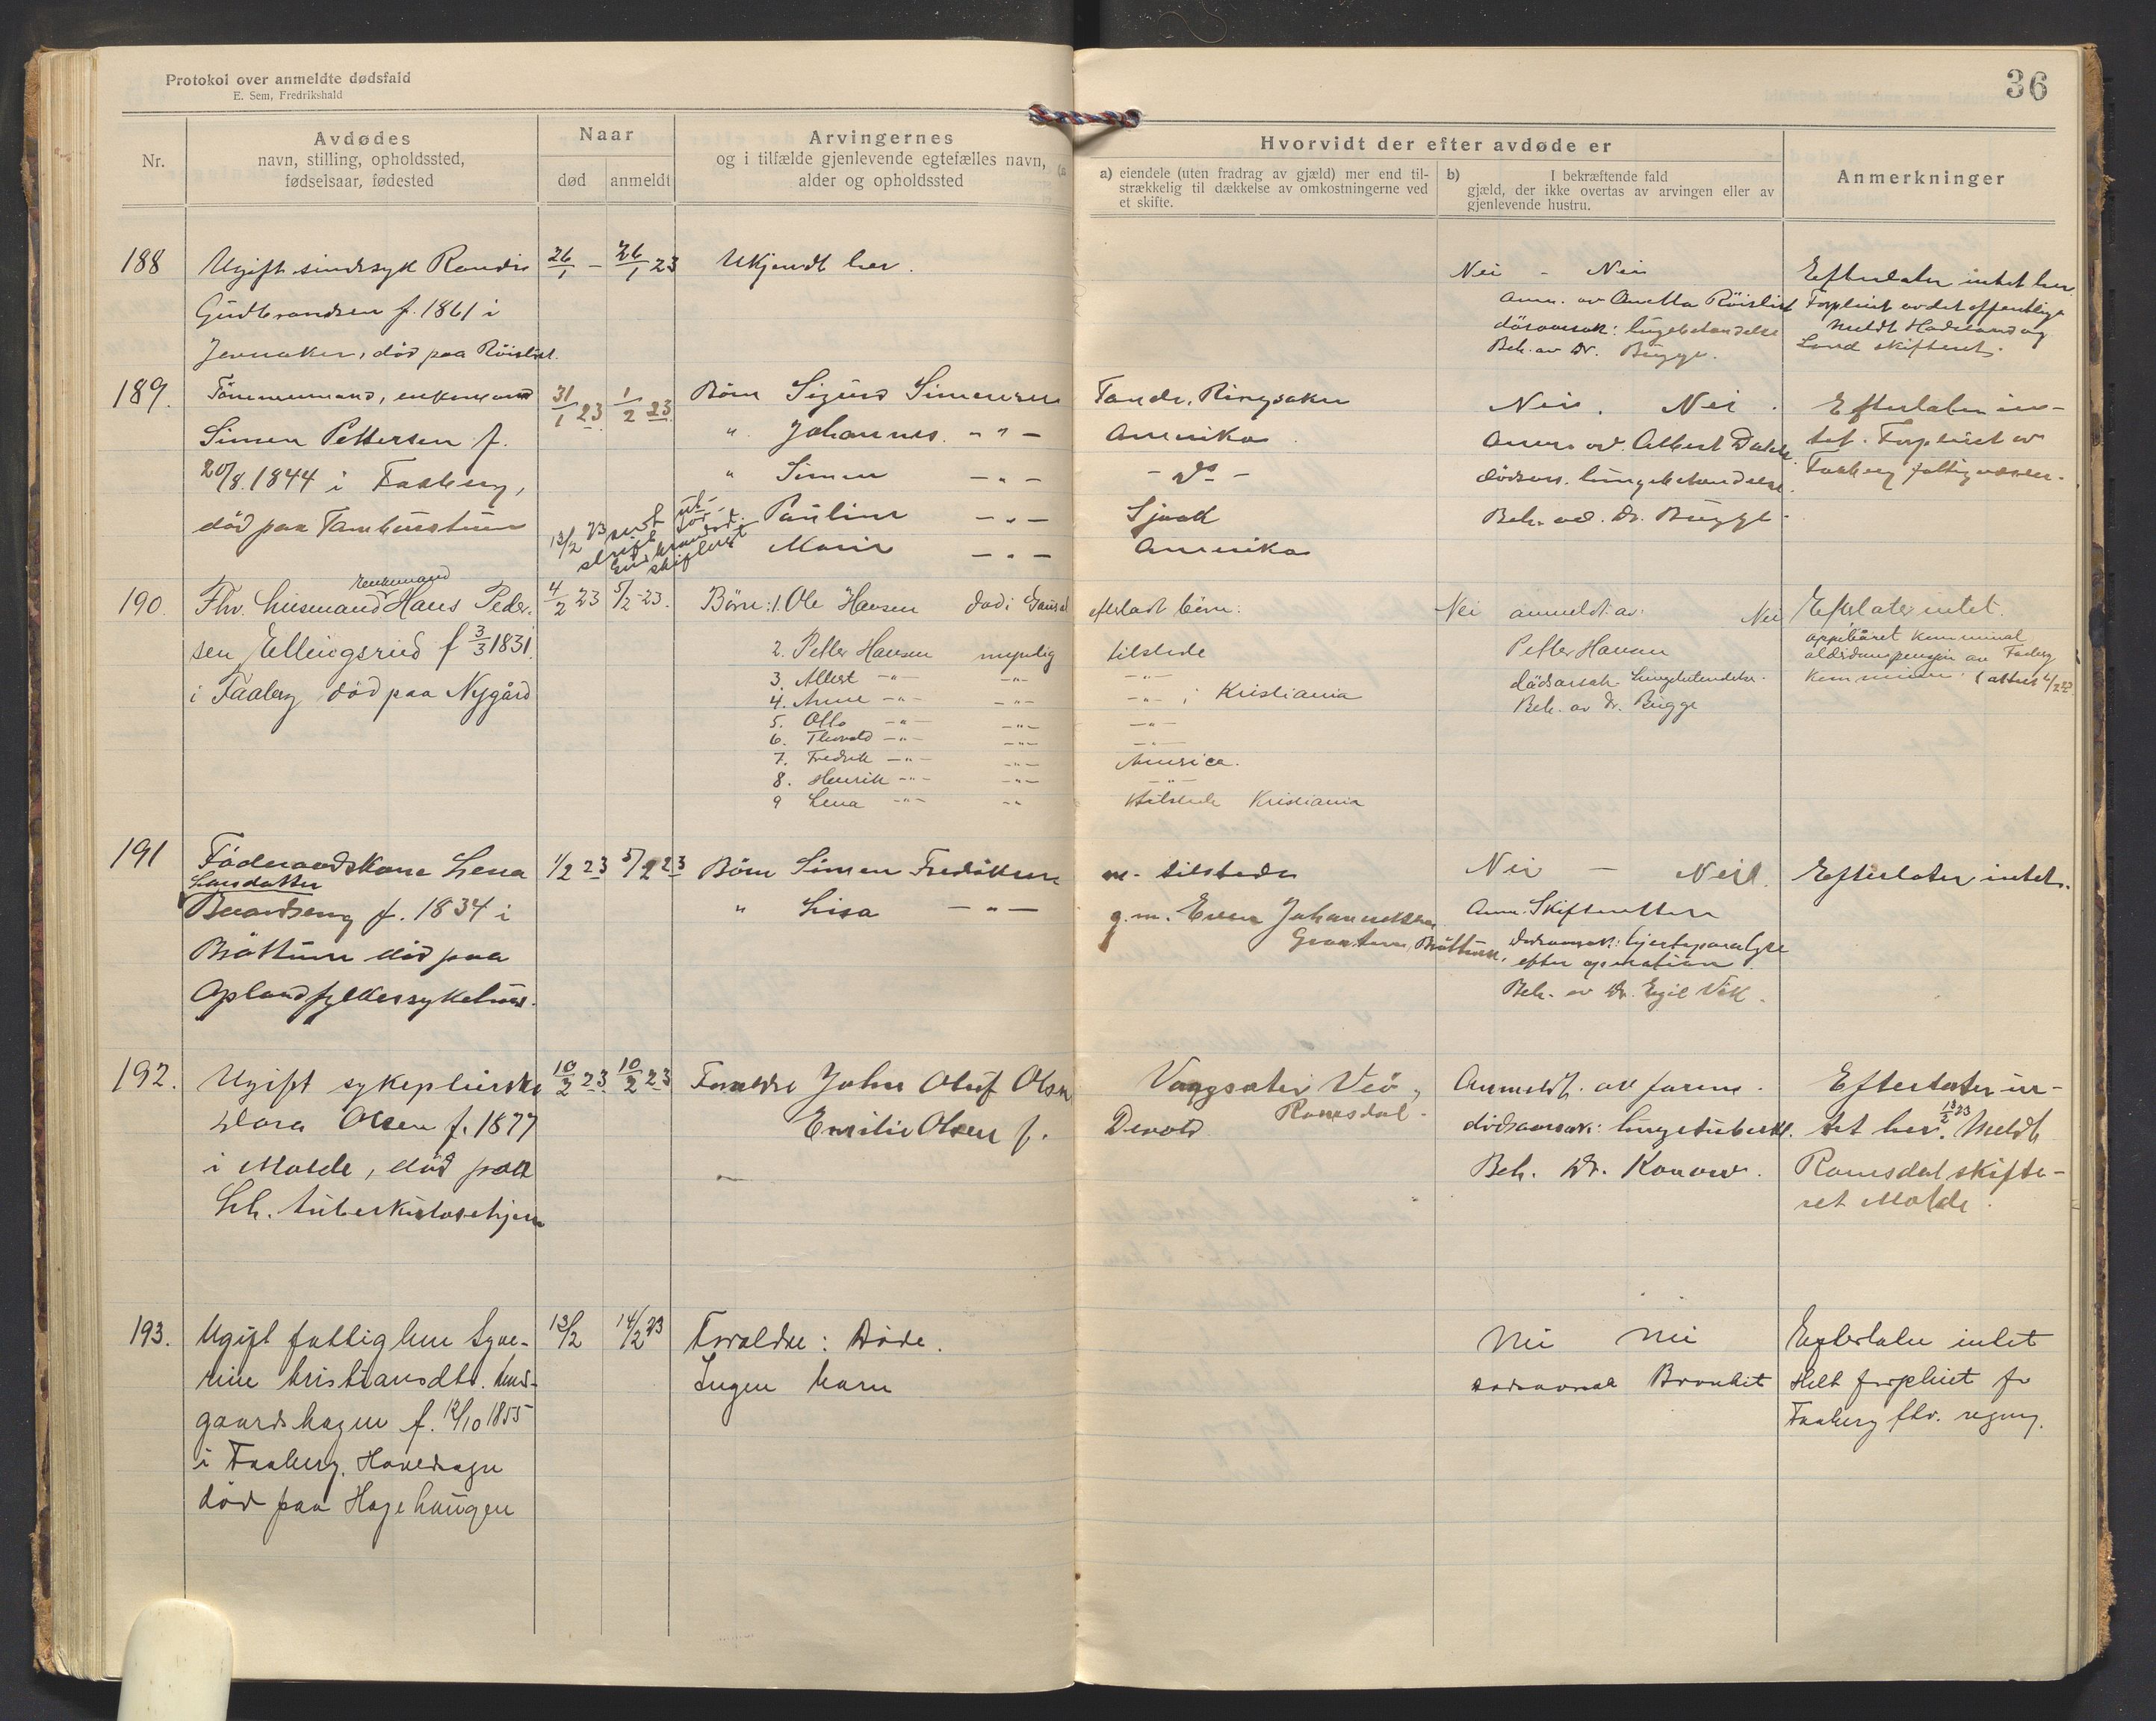 Protokol over anmeldte dødsfald
E. Sem, Fredrikshald
36
Nr.
Avdødes
navn, stilling, opholdssted,
fødselsaar, fødested
Naar
død
anmeldt
Arvingernes
og i tilfælde gjenlevende egtefælles navn,
alder og opholdssted
Hvorvidt der efter avdøde er
a) eiendele (uten fradrag av gjæld) mer end til-
strækkelig til dækkelse av omkostningerne ved
et skifte.
b) I bekræftende fald
gjæld, der ikke overtas av arvingen eller av
gjenlevende hustru.
Anmerkninger
188
Ugift sindsyk Randi
Gudbrandsen f. 1861 i
Jevnaker, død paa Röislist.
26/1 -
26/1 23
Ukjendt her.
Nei - Nei
Anm. av Anetta Röislist
dösaarsak: lungebetændelse
Beh. av Dr. Bugge.
Efterlater intet her.
Forpleiet av det offentlige
Meldt Hadeland og
Land skifteret.
189.
Tömmermand, enkemand
Simen Pettersen f.
20/8. 1844 i Faaberg,
död paa
31/1 23
1/2 23
13/2 23 sent ut-
skrift
skifteret
Börn Sigurd Simensen
" Johannes - " -
" Simen - " -
Pauline - " -
Marie - " -
Ringsaker
Amerika
- Do -
Sjoak
Amerika
Nei. Nei.
Anm. av. Albert
dödsårs. lungebetændelse.
Beh. av. Dr. Bugge.
Efterlater in-
tet. Forpleiet av
Faaberg fattigvæsen.
190.
Enkemand
Fhv. husmand Hans Peder-
sen Ellingsrud f 3/3 1831
i Faaberg död paa Nygård
4/2 23
5/2 - 23.
Börn: 1. Ole Hansen död i Gausdal
2. Petter Hansen myndig
3. Albert -"- -"-
4. Anne -"- -"-
5. Otto -"- -"-
6. Thorvald -"- -"-
7. Fredrik -"- -"-
8. Henrik -"- -"-
9 Lena -"- -"-
efterladt börn.
tilstede
-"-
-"- i Kristiania
-"-
-"-
America.
-"-
tilstede Kristiania
Nei anmeldt av: Nei
Petter Hansen
dödsårsak Lungebetændelse.
Beh. av Dr. Bugge
Efterlater intet.
oppebåret kommunal
alderdomspensjon av Faaberg
kommune.
191
Föderaadskone Lena
Larsdatter
f. 1834 i
Bröttum död paa
Oplandfylkessykehus.
1/2 23
5/2 23
Börn Simen Fredriksen
" Lisa - " -
m. tilstede
g. m. Even Johannessen
Bröttum.
Nei - Nei.
Anm. Skifteretten
Dödsaarsak: hjerteparalyse
efter operation
Beh. av Dr. Egil Vik.
Efterlater intet.
192.
Ugift sykepleierske
Dora Olsen f. 1877
i Molde, död paa
Lh. tuberkulosehjem
10/2 23
10/2 23
Foreldre John Oluf Olsen
Emilie Olsen f.
Devold
Veö,
Romsdal.
Anmeldt. av faren.
dödsaarsak: lungetuberkl.
Beh. Dr. Konow.
Efterlater in-
tet her. 13/2 23 Meldt
Romsdal skifte-
ret Molde.
193.
Ugift fattiglem
Kristiansdtr.
f. 12/10 1855
i Faaberg.
død paa Hagehaugen
13/2
14/2 23
Foreldre: Døde.
Ingen barn
Nei Nei
Dødsaarsak Bronkit
Efterlater intet
Helt forpleiet for
Faaberg ftv. regning.